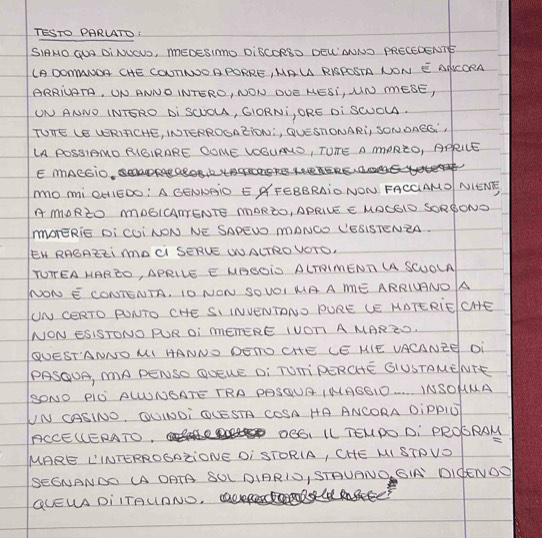 TESTO PARLATO:
SIAMO QUA DI NUOVO, MEDESIMO DISCORSO DELL'ANNO PRECEDENTE
LA DOMANDA CHE CONTINUO A PORRE, MA LA RISPOSTA NON È ANCORA
ARRIVATA. UN ANNO INTERO, NON DUE MESI, UN MESE,
UN ANNO INTERO DI SCUOLA, GIORNI, ORE DI SCUOLA.
TUTTE LE VERIFICHE, INTERROGAZIONI, QUESTIONARI, SONDAGGI,
LA POSSIAMO RIGIRARE COME VOGLIAMO, TUTTE A MARZO, APRILE
E MAGGIO.
MO MI CHIEDO: A GENNAIO E A FEBBRAIO NON FACCIAMO NIENTE,
A MARZO MAGICAMENTE MARZO, APRILE E MAGGIO SORGONO
MATERIE DI CUI NON NE SAPEVO MANCO L'ESISTENZA.
EH RAGAZZI MA CI SERVE UN ALTRO VOTO.
TUTTE A MARZO, APRILE E MAGGIO ALTRIMENTI LA SCUOLA
NON È CONTENTA. IO NON SO VOI MA A ME ARRIVANO A
UN CERTO PUNTO CHE SI INVENTANO PURE LE MATERIE CHE
NON ESISTONO PUR DI METTERE I VOTI A MARZO.
QUEST'ANNO MI HANNO DETTO CHE LE MIE VACANZE DI
PASQUA, MA PENSO QUELLE DI TUTTI PERCHÉ GIUSTAMENTE
SONO PIÙ ALLUNGATE TRA PASQUA, MAGGIO..... INSOMMA
UN CASINO. QUINDI QUESTA COSA HA ANCORA DIPPIÙ
ACCELLERATO. OGGI IL TEMPO DI PROGRAM=
MARE L'INTERROGAZIONE DI STORIA, CHE MI STAVO
SEGNANDO LA DATA SUL DIARIO, STAVANO GIÀ DICENDO
QUELLA DI ITALIANO.